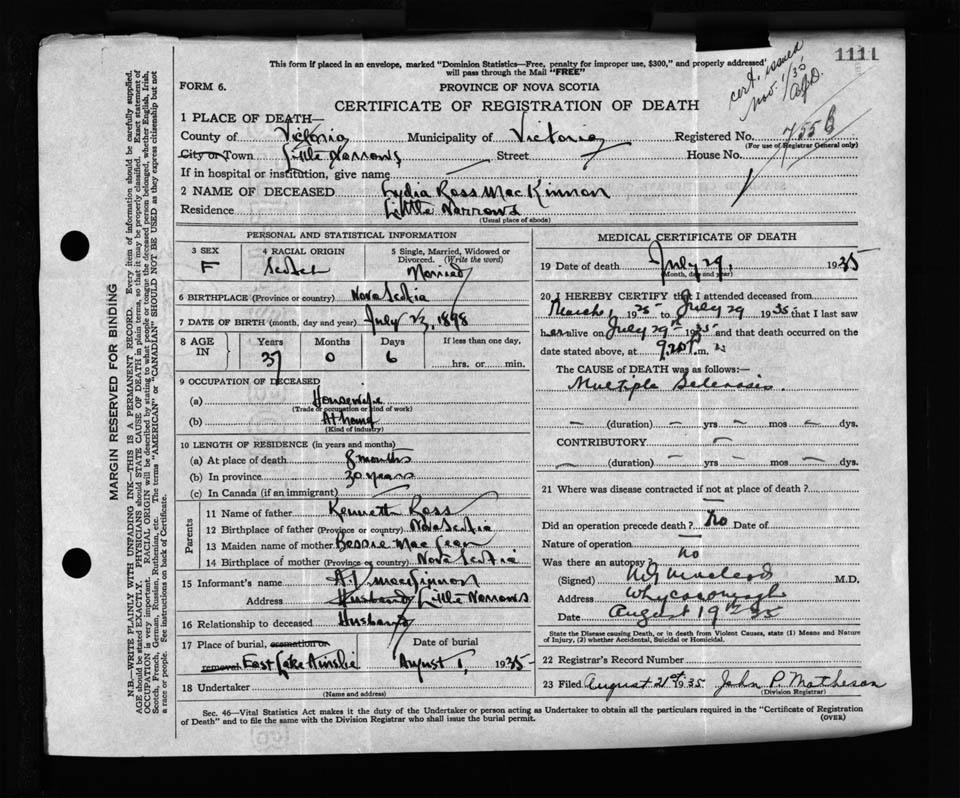 1111
cert. issued
Nov. 1/35
This form if placed in an envelope, marked "Dominion Statistics—Free, penalty for improper use, $300," and properly addressed
will pass through the Mail "FREE"
FORM 6.
PROVINCE OF NOVA SCOTIA
CERTIFICATE OF REGISTRATION OF DEATH
1 PLACE OF DEATH—
County of Victoria Municipality of Victoria Registered No. 755B
(For use of Registrar General only)
City or Town Little Narrows Street House No.
If in hospital or institution, give name
2 NAME OF DECEASED Lydia Ross MacKinnon
Residence Little Narrows
(Usual place of abode)
PERSONAL AND STATISTICAL INFORMATION
3 SEX
F
4 RACIAL ORIGIN
Scotch
5 Single, Married, Widowed or
Divorced. (Write the word)
Married
6 BIRTHPLACE (Province or country) Nova Scotia
7 DATE OF BIRTH (month, day and year) July 23, 1898
8 AGE
IN
Years
37
Months
0
Days
6
If less than one day,
hrs. or min.
9 OCCUPATION OF DECEASED
(a) Housewife
(Trade or occupation or kind of work)
(b) At home
(Kind of industry)
10 LENGTH OF RESIDENCE (in years and months)
(a) At place of death 8 months
(b) In province 30 years
(c) In Canada (if an immigrant)
Parents
11 Name of father Kenneth Ross
12 Birthplace of father (Province or country) Nova Scotia
13 Maiden name of mother Bessie MacLean
14 Birthplace of mother (Province or country) Nova Scotia
15 Informant's name A. J. MacKinnon
Address Husband Little Narrows
16 Relationship to deceased Husband
17 Place of burial, cremation or Date of burial
removal East Lake Ainslie August 1, 1935
18 Undertaker
(Name and address)
MEDICAL CERTIFICATE OF DEATH
19 Date of death July 29, 1935
(Month, day and year)
20 I HEREBY CERTIFY that I attended deceased from
March 1, 1935 to July 29 1935 that I last saw
her alive on July 29th 1935 and that death occurred on the
date stated above, at 9.20 P. m.
The CAUSE of DEATH was as follows:—
Multiple Sclerosis.
— (duration) — yrs — mos — dys.
CONTRIBUTORY —
— (duration) — yrs — mos — dys.
21 Where was disease contracted if not at place of death?
Did an operation precede death? No Date of
Nature of operation —
Was there an autopsy? No
(Signed) MacLeod M.D.
Address Whycocomagh
Date August 19th 35
State the Disease causing Death, or in death from Violent Causes, state (1) Means and Nature
of Injury, (2) whether Accidental, Suicidal or Homicidal.
22 Registrar's Record Number
23 Filed August 21st 1935 John P. Matheson
(Division Registrar)
Sec. 46—Vital Statistics Act makes it the duty of the Undertaker or person acting as Undertaker to obtain all the particulars required in the "Certificate of Registration
of Death" and to file the same with the Division Registrar who shall issue the burial permit.
(OVER)
MARGIN RESERVED FOR BINDING
N.B.—WRITE PLAINLY WITH UNFADING INK—THIS IS A PERMANENT RECORD. Every item of information should be carefully supplied.
AGE should be stated EXACTLY. PHYSICIANS should STATE CAUSE OF DEATH in plain terms, so that it may be properly classified. Exact statement of
OCCUPATION is very important. RACIAL ORIGIN will be described by stating to what people or tongue the deceased person belonged, whether English, Irish,
Scotch, French, German, Russian, Ruthenian, etc. The terms "AMERICAN" or "CANADIAN" SHOULD NOT BE USED as they express citizenship but not
a race or people. See instructions on back of Certificate.